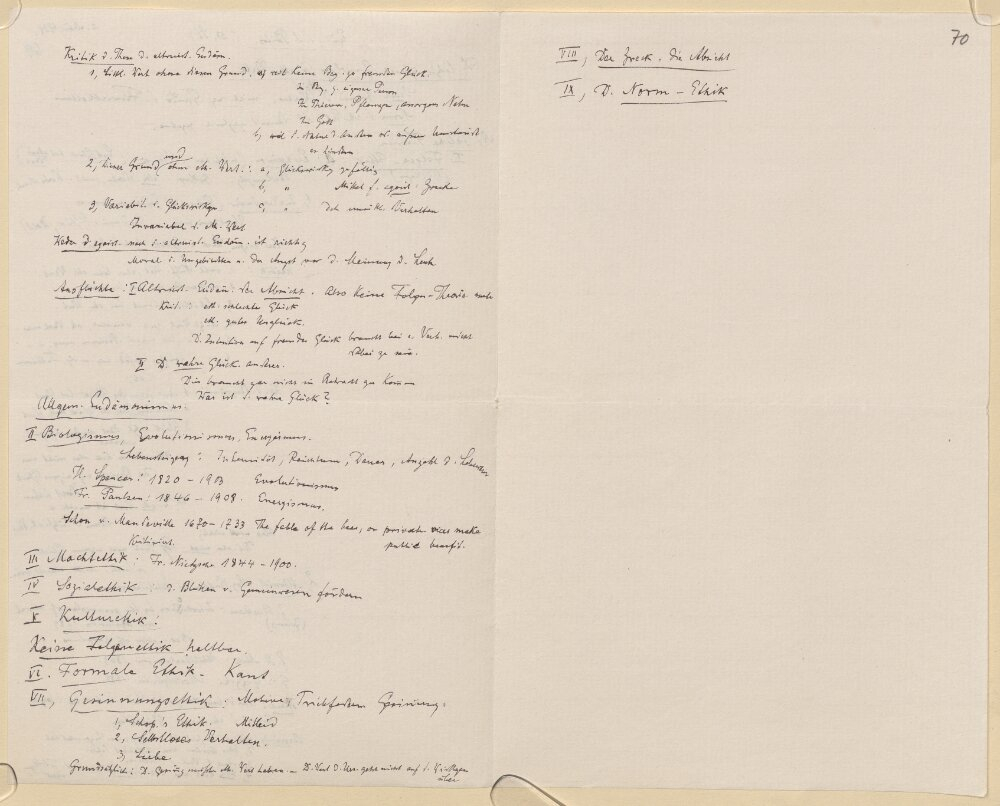 Kritik d. Theor. d. altruist. Eudäm.
1, Sittl. Wert ohne diesen Grund. a, weil keine Bez. zu fremdem Glück.
In Bez. z. eigener Person
Zu Tieren, Pflanzen, anorgan. Natur
Zu Gott
b, weil d. Natur d. Andern es
zu hindern
2, Dieser Grund und ohne eth. Wert: a, Glückswirkg zufällig
b, " Mittel f. egoist. Zwecke
3, Variabil. d. Glückswirkgn c, " Verhalten
Invariabel d. eth. Wert
Weder D. egoist. noch d. altruist. Eudäm. ist richtig
Moral d. u. der Angst vor d. Meinung d. Leute
Ausflüchte: I Altruist. Eudäm. der Absicht. Also keine Folgen-Theorie mehr
Krit.: eth. schlechtes Glück
eth. gutes Unglück.
D. Intention auf fremdes Glück braucht bei e. Verh. nicht
dabei zu sein.
II D. wahre Glück anderer.
Dies braucht gar nicht in Betracht zu kommen
Was ist d. wahre Glück?
Allgem. Eudämonismus.
II Biologismus, Evolutionismus, Energismus.
Lebenssteigerg: Intensität, Reichtum, Dauer, Anzahl d. Lebenden
H. Spencer: 1820 – 1903 Evolutionismus
Fr. Paulsen: 1846 – 1908. Energismus.
Schon v. Mandeville 1670–1733 The fable of the bees, or private vices make
kritisiert. public benefit.
III Machtethik: Fr. Nietzsche 1844 – 1900.
IV Sozialethik d. Blühen v. Gemeinwesen fördern
V Kulturethik:
Keine Folgenethik haltbar.
VI. Formale Ethik – Kant
VII, Gesinnungsethik: Motive, Triebfedern Gesinnung:
1, Schop.'s Ethik. Mitleid
2, Selbstloses Verhalten.
3, Liebe
Grundsätzlich: D. Gesinng müsste eth. Wert haben. – D. Wert d. geht nicht auf d.
über
70
VIII, Der Zweck. die Absicht
IX, D. Norm – Ethik